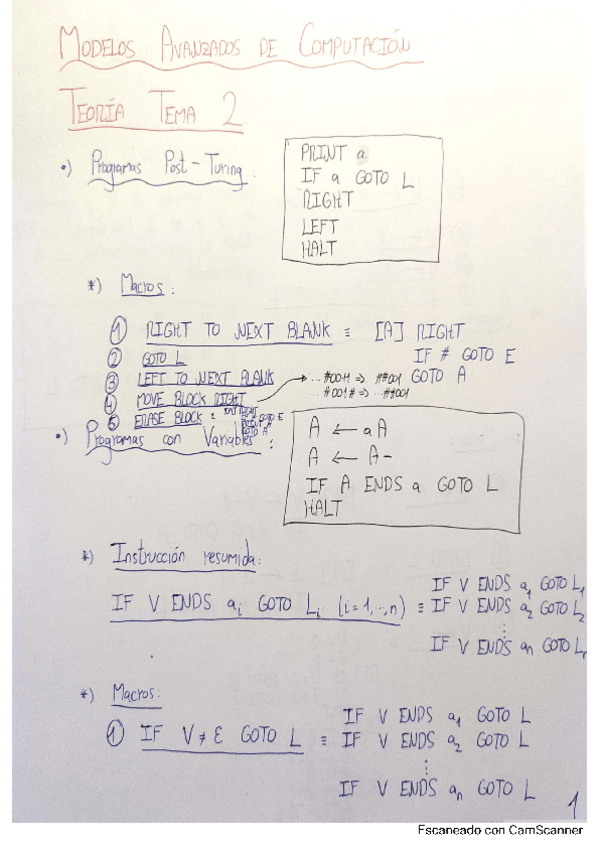 MODELOS AVANZADOS DE COMPUTACIÓN
TEORÍA TEMA 2
•) Programas Post-Turing:
PRINT a
IF a GOTO L
RIGHT
LEFT
HALT
*) Macros:
① RIGHT TO NEXT BLANK ≡ [A] RIGHT
IF # GOTO E
GOTO A
② GOTO L
③ LEFT TO NEXT BLANK
④ MOVE BLOCK RIGHT
⑤ ERASE BLOCK ≡ [A] RIGHT
IF # GOTO E
PRINT #
GOTO A
•) Programas con Variables:
A ← aA
A ← A-
IF A ENDS a GOTO L
HALT
*) Instrucción resumida:
IF V ENDS aᵢ GOTO Lᵢ (i=1,...,n) ≡ IF V ENDS a₁ GOTO L₁
IF V ENDS a₂ GOTO L₂
⋮
IF V ENDS an GOTO Ln
*) Macros:
① IF V≠ε GOTO L ≡ IF V ENDS a₁ GOTO L
IF V ENDS a₂ GOTO L
⋮
IF V ENDS an GOTO L
1
Escaneado con CamScanner